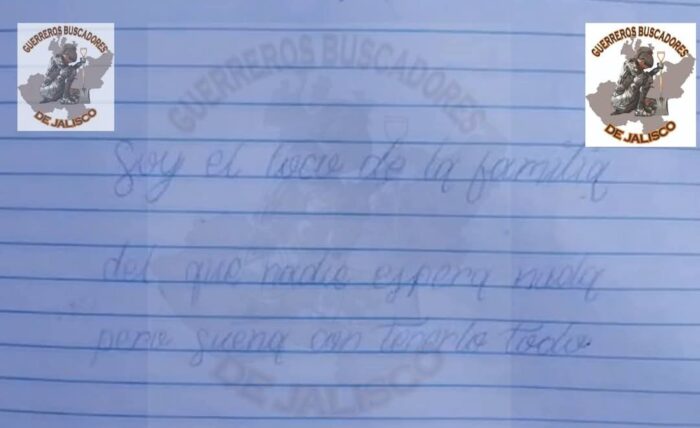 GUERREROS BUSCADORES
DE JALISCO
GUERREROS BUSCADORES
DE JALISCO
GUERREROS BUSCADORES
DE JALISCO
Soy el locio de la familia
del que nadie espera nada
pero suena con tenerlo todo.